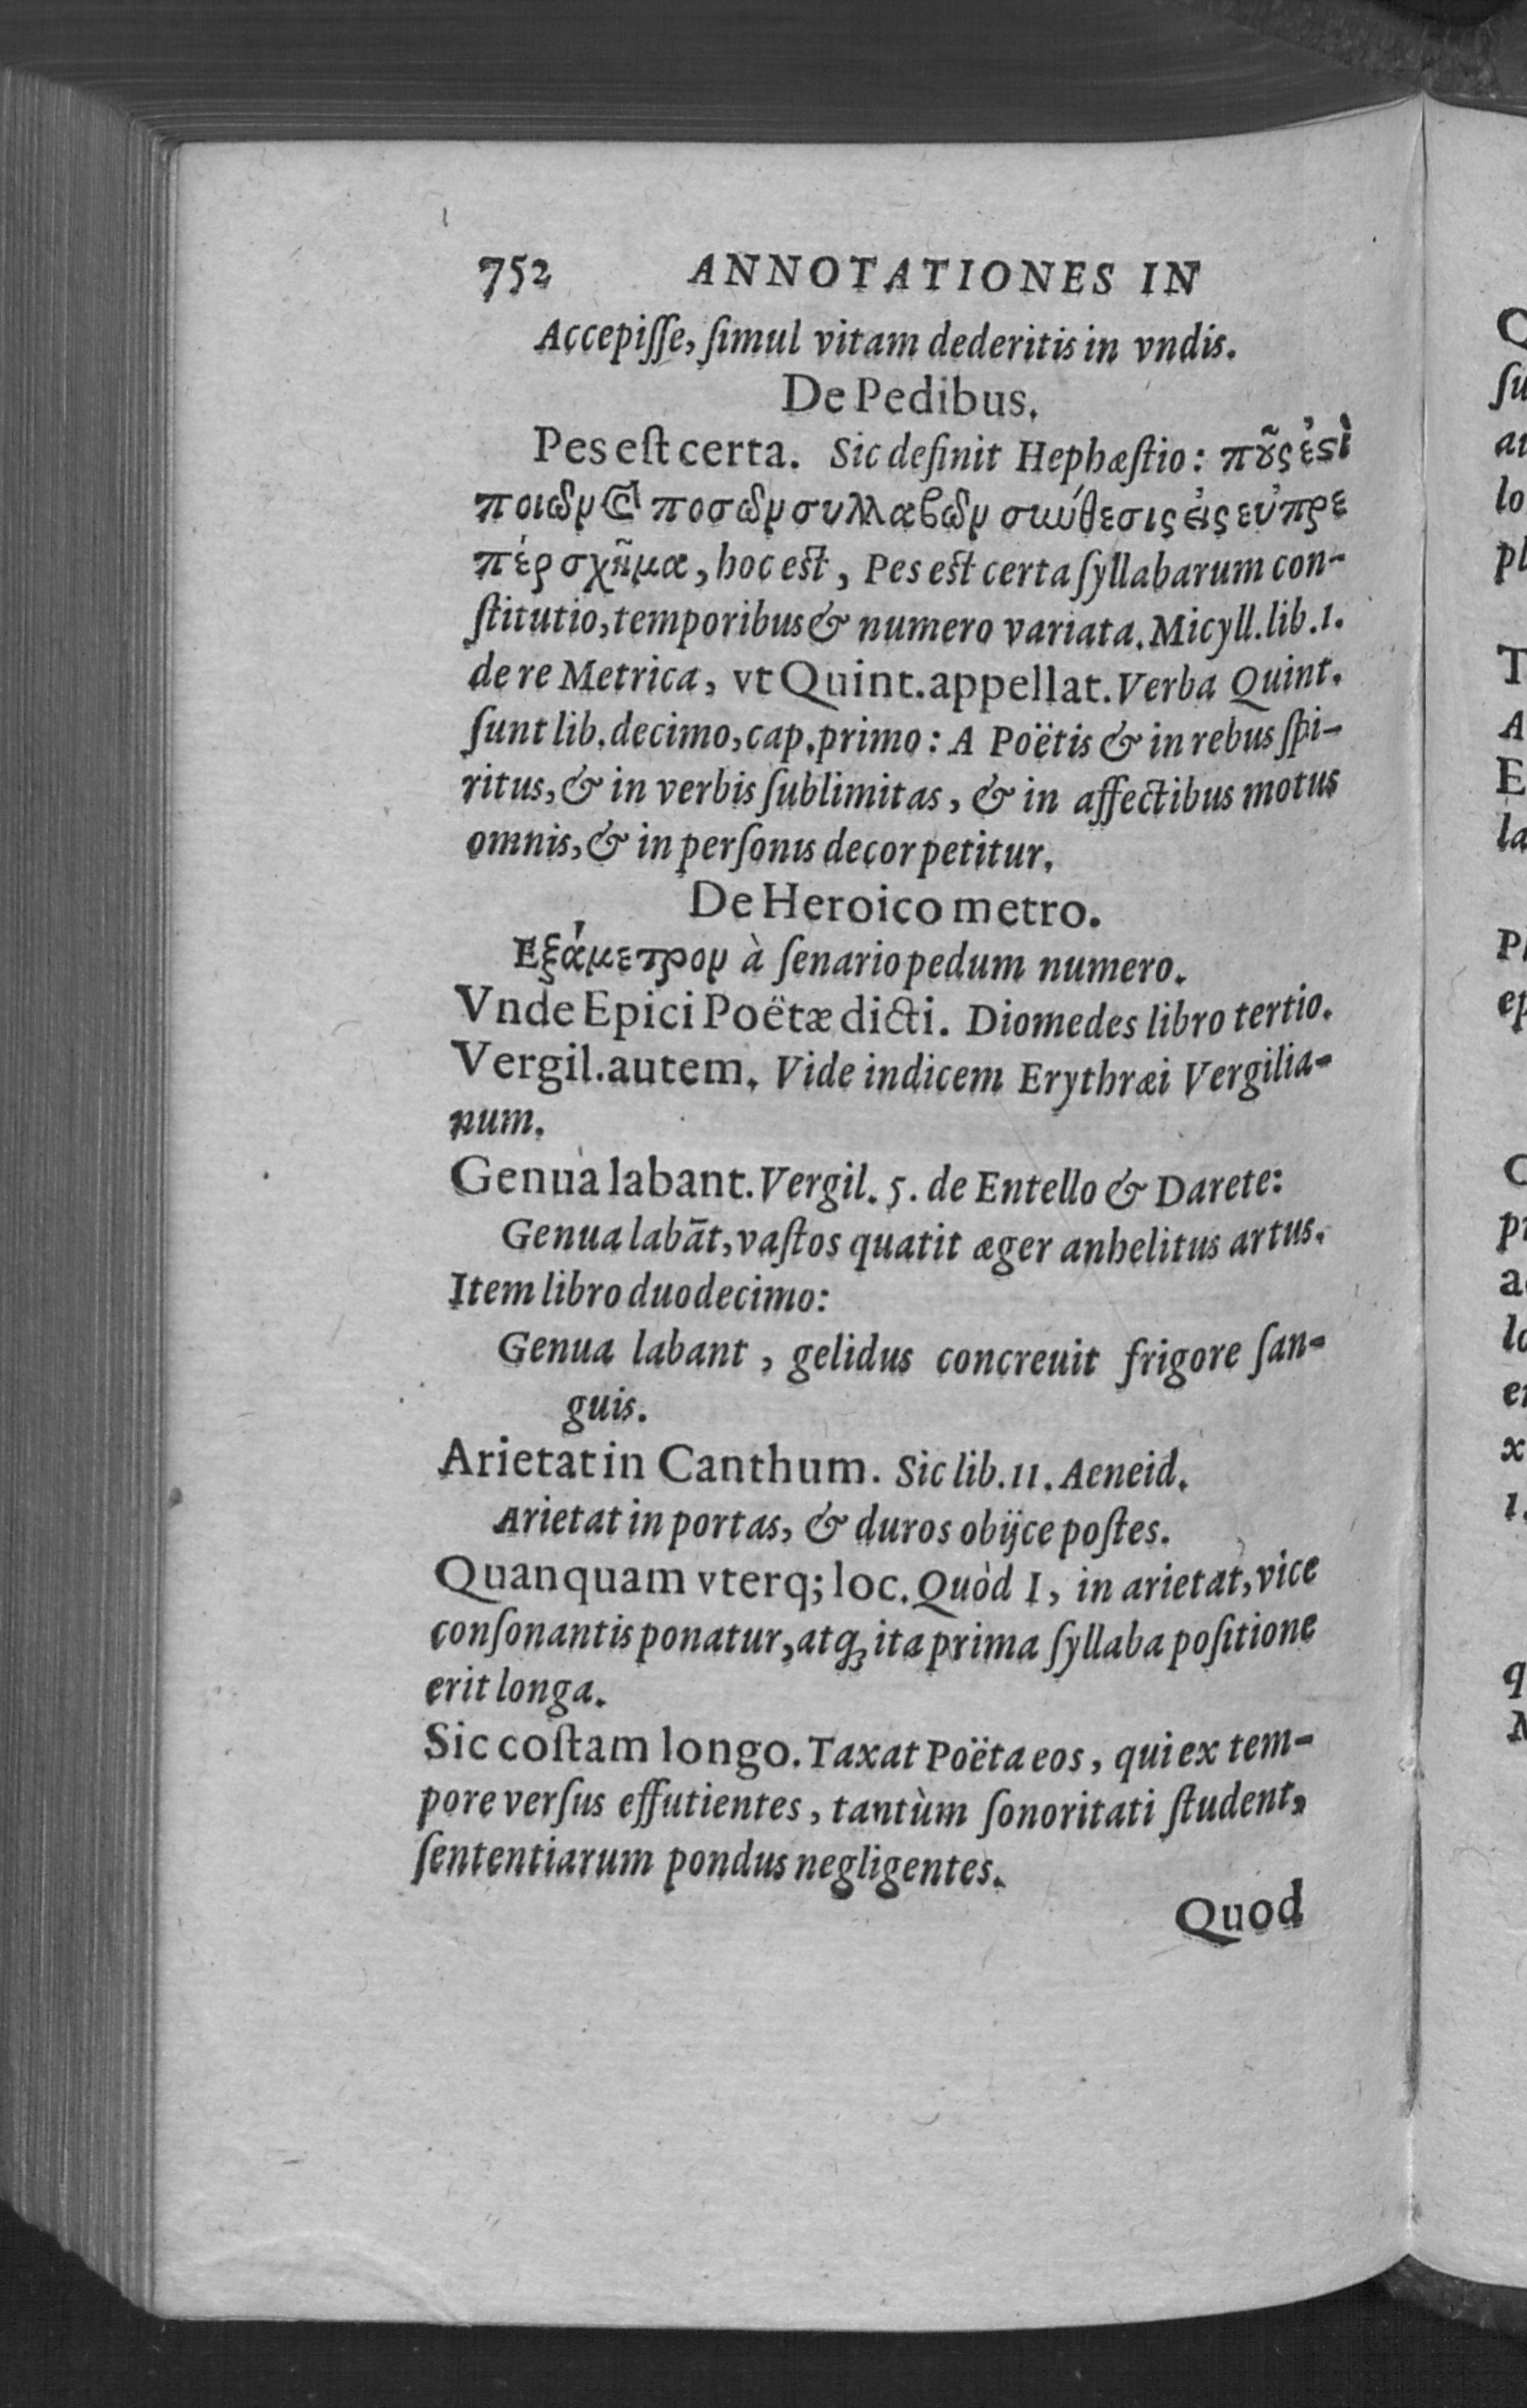 752 ANNOTATIONES IN
Accepiſſe, ſimul vitam dederitis in vndis.
De Pedibus.
Pes eſt certa. Sic definit Hephæſtio: πȣ͂ς ἐϛὶ
ποιῶν καὶ ποσῶν συλλαβῶν σιώθεσις εἰς εὐπρε
πὲς σχῆμα, hoc eſt, Pes eſt certa ſyllabarum con-
ſtitutio, temporibus & numero variata. Micyll. lib. 1.
de re Metrica, vt Quint. appellat. Verba Quint.
ſunt lib. decimo, cap. primo: A Poëtis & in rebus ſpi-
ritus, & in verbis ſublimitas, & in affectibus motus
omnis, & in perſonis decor petitur.
De Heroico metro.
Εξάμετρον à ſenario pedum numero.
Vnde Epici Poëtæ dicti. Diomedes libro tertio.
Vergil. autem. Vide indicem Erythræi Vergilia-
num.
Genua labant. Vergil. 5. de Entello & Darete:
Genua labāt, vaſtos quatit æger anhelitus artus.
Item libro duodecimo:
Genua labant, gelidus concreuit frigore ſan-
guis.
Arietat in Canthum. Sic lib. 11. Aeneid.
Arietat in portas, & duros obijce poſtes.
Quanquam vterq; loc. Quòd I, in arietat, vice
conſonantis ponatur, atq; ita prima ſyllaba poſitione
erit longa.
Sic coſtam longo. Taxat Poëta eos, qui ex tem-
pore verſus effutientes, tantùm ſonoritati ſtudent,
ſententiarum pondus negligentes.
Quod